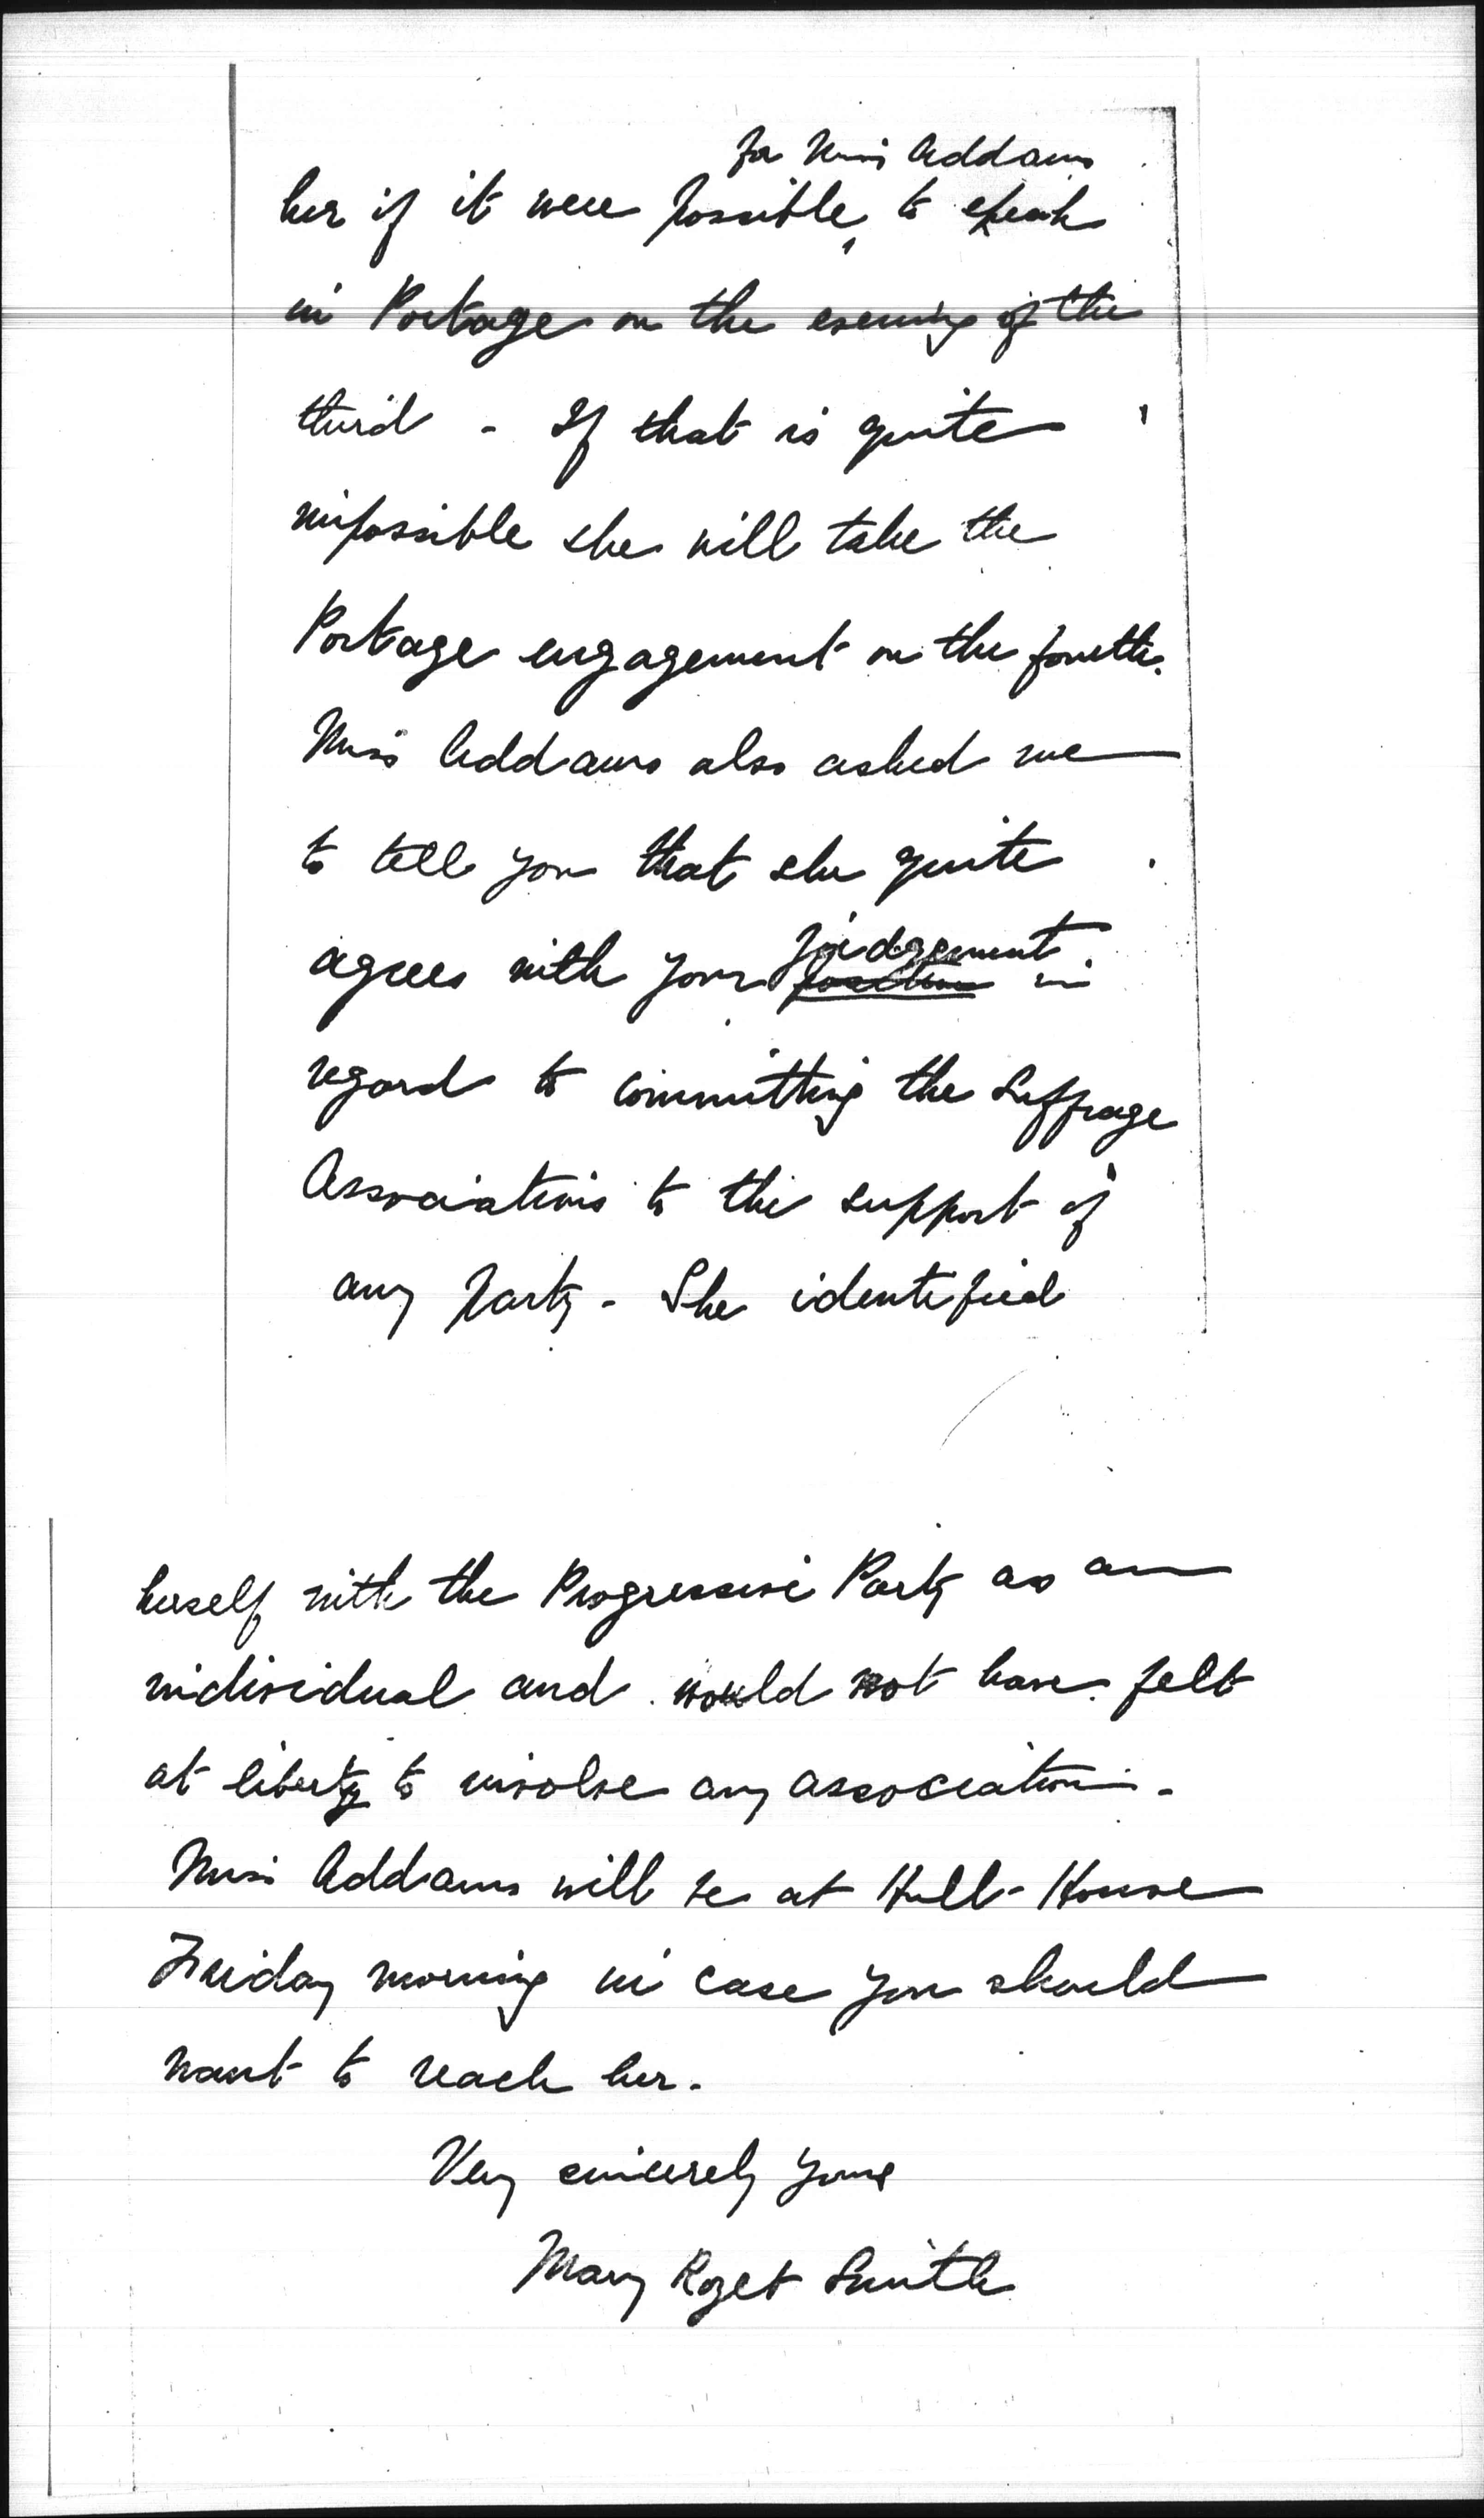 for Miss Addams
her if it were possible, to speak
in Portage on the evening of the
third - If that is quite
impossible she will take the
Portage engagement on the fourth.
Miss Addams also asked me
to tell you that she quite
judgement
agrees with your position in
regard to committing the Suffrage
Associations to the support of
any party - She identified
herself with the Progressive Party as an
individual and would not have felt
at liberty to involve any association -
Miss Addams will be at Hull-House
Friday morning in case you should
want to reach her.
Very sincerely yours
Mary Rozet Smith